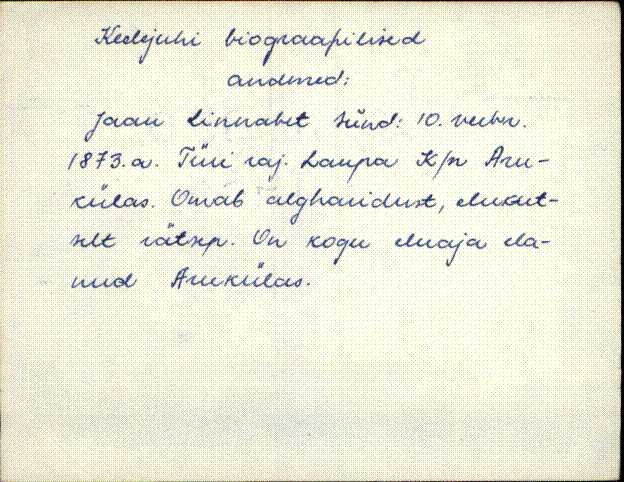 Keelejuhi biograafilised
andmed:
Jaan Linnabet sünd: 10. veebr.
1873.a. Türi raj. Laupa K/n Aru-
külas. Omab algharidust, elukut-
selt rätsep. On kogu eluaja ela-
nud Arukülas.